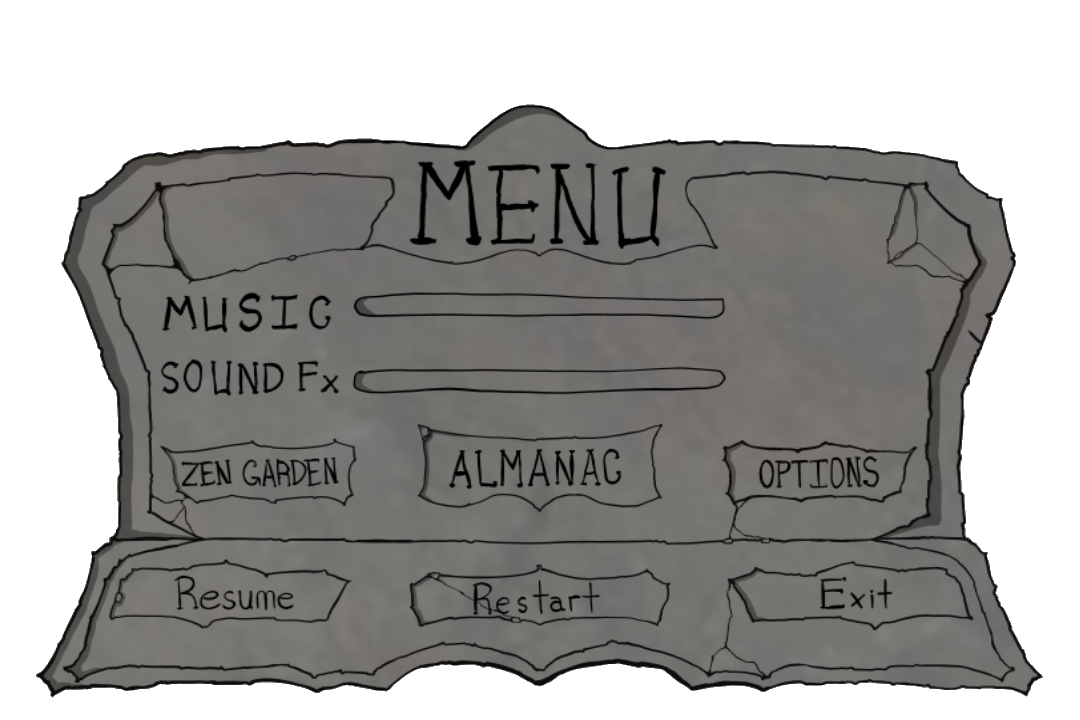 MENU
MUSIC
SOUND Fx
ZEN GARDEN
ALMANAC
OPTIONS
Resume
Restart
Exit